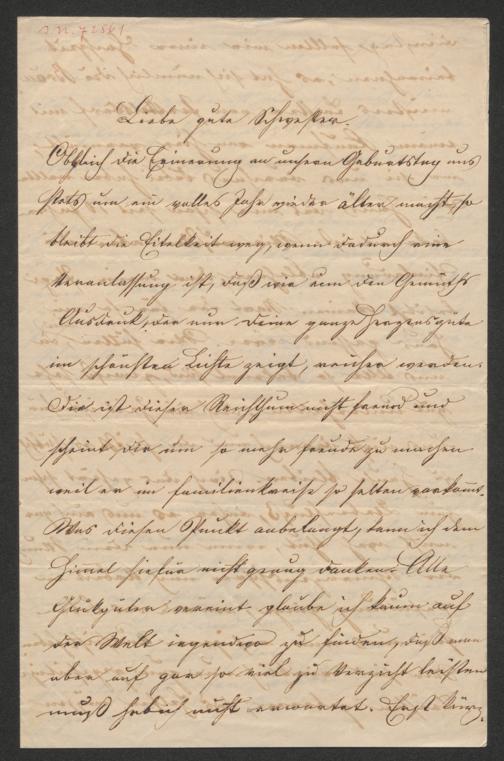 J. N. 72561
Liebe gute Schwester.
Obgleich die Erinerung an unsern Geburtstag uns
stets um ein volles Jahr wieder älter macht, so
bleibt die Eitelkeit weg, wenn dadurch eine
Veranlassung ist, daß wir um den Gemüths
Ausdruk, der nur Deine ganze Herzensgüte
im schönsten Lichte zeigt, reicher werden.
Dir ist dieser Reichthum nicht fremd und
scheint dir um so mehr Freude zu machen
weil er im Familienkreise so selten vorkommt.
Was diesen Punkt anbelangt, kann ich dem
Himel hiefür nicht genug danken. Alle
Glukgüter vereint glaube ich kaum auf
der Welt irgendwo zu finden, daß man
aber auf gar so viel zu Verzicht leisten
muß hab ich nicht erwartet. Erst kürz-